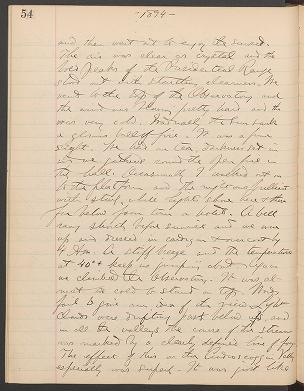 54
-1894-
and then went out to enjoy the sunset.
The air was clear as crystal and the
bold peaks of the Presidential Range
stood out with startling clearness. We
went to the top of the Observatory and
the wind was blowing pretty hard and it
was very cold. Gradually the sun sank
a glorious ball of fire. It was a fine
sight. We had our tea, darkness set in
and we gathered round the open fire in
the hall. Occasionally I walked out on
to the platform and the night was brilliant
with stars, while lights shone here & there
far below from town & hotel. A bell
rang shortly before sunrise and we were
up and dressed in cardigan & overcoat by
4 A.M. A stiff breeze and the temperature
at 40°+ kept us jumping about. Again
we climbed the Observatory. It was al-
most too cold to stand on top. Words
fail to give an idea of the view. Light
clouds were drifting just below us and
in all the valleys the course of the stream
was marked by a clearly defined line of fog.
The effect of this in the Androscoggin Valley
especially was superb. It was just like